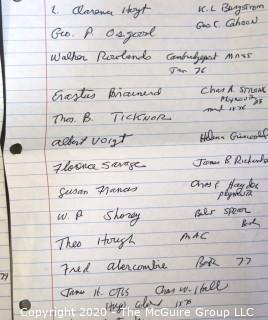 L Clarence Hoyt K.L. Bergstrom
Geo. P. Osgood Geo C. Cahoon
Walter Rowlands Cambridgeport MASS
Jan 76
Erastus Brainerd Chas A. STRONG
Plymouth
Thos. B. TICKNOR
Albert Voigt Helena Griswold
Florence Savage James B Richardson
Susan Francis Chas F Haydon
Plymouth
W. P Shorey Bob
Theo Hough MAC
Fred Abercombie Bob 77
James H. OTIS Chas W. Hall
79
Copyright 2020 - The McGuire Group, LLC